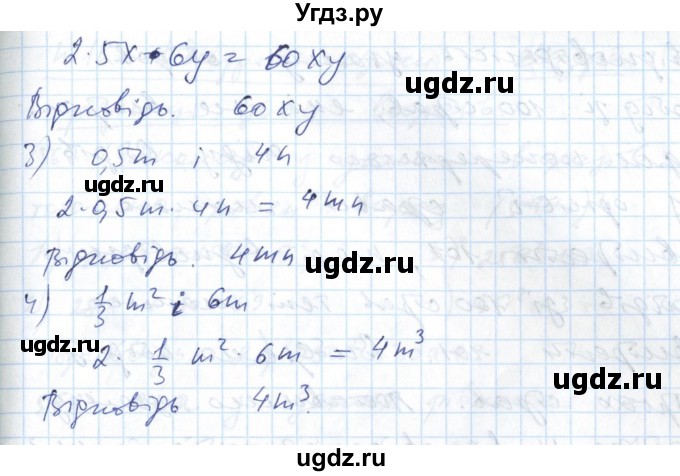 Угдз.ру
2·5x·6y = 60xy
ugdz.ru
Відповідь. 60xy
ugdz.ru
3) 0,5m і 4n
ugdz.ru
2·0,5m·4n = 4mn
ugdz.ru
Відповідь. 4mn
ugdz.ru
4) 1/3 m² і 6m
ugdz.ru
2·1/3 m²·6m = 4m³
ugdz.ru
Відповідь 4m³.
ugdz.ru